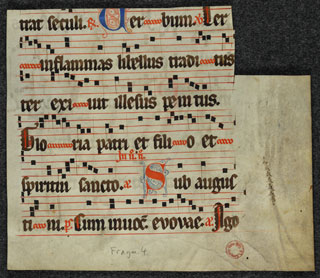 trat seculi. Ver bum. Ver
inflammas libellus tradi tus
ter exi uit illesus penitus.
Glo ria patri et fili o et
spiritui sancto. Sub augus
ti ni. ps. Cum inuoc̄. evovae.
Fragm 4.